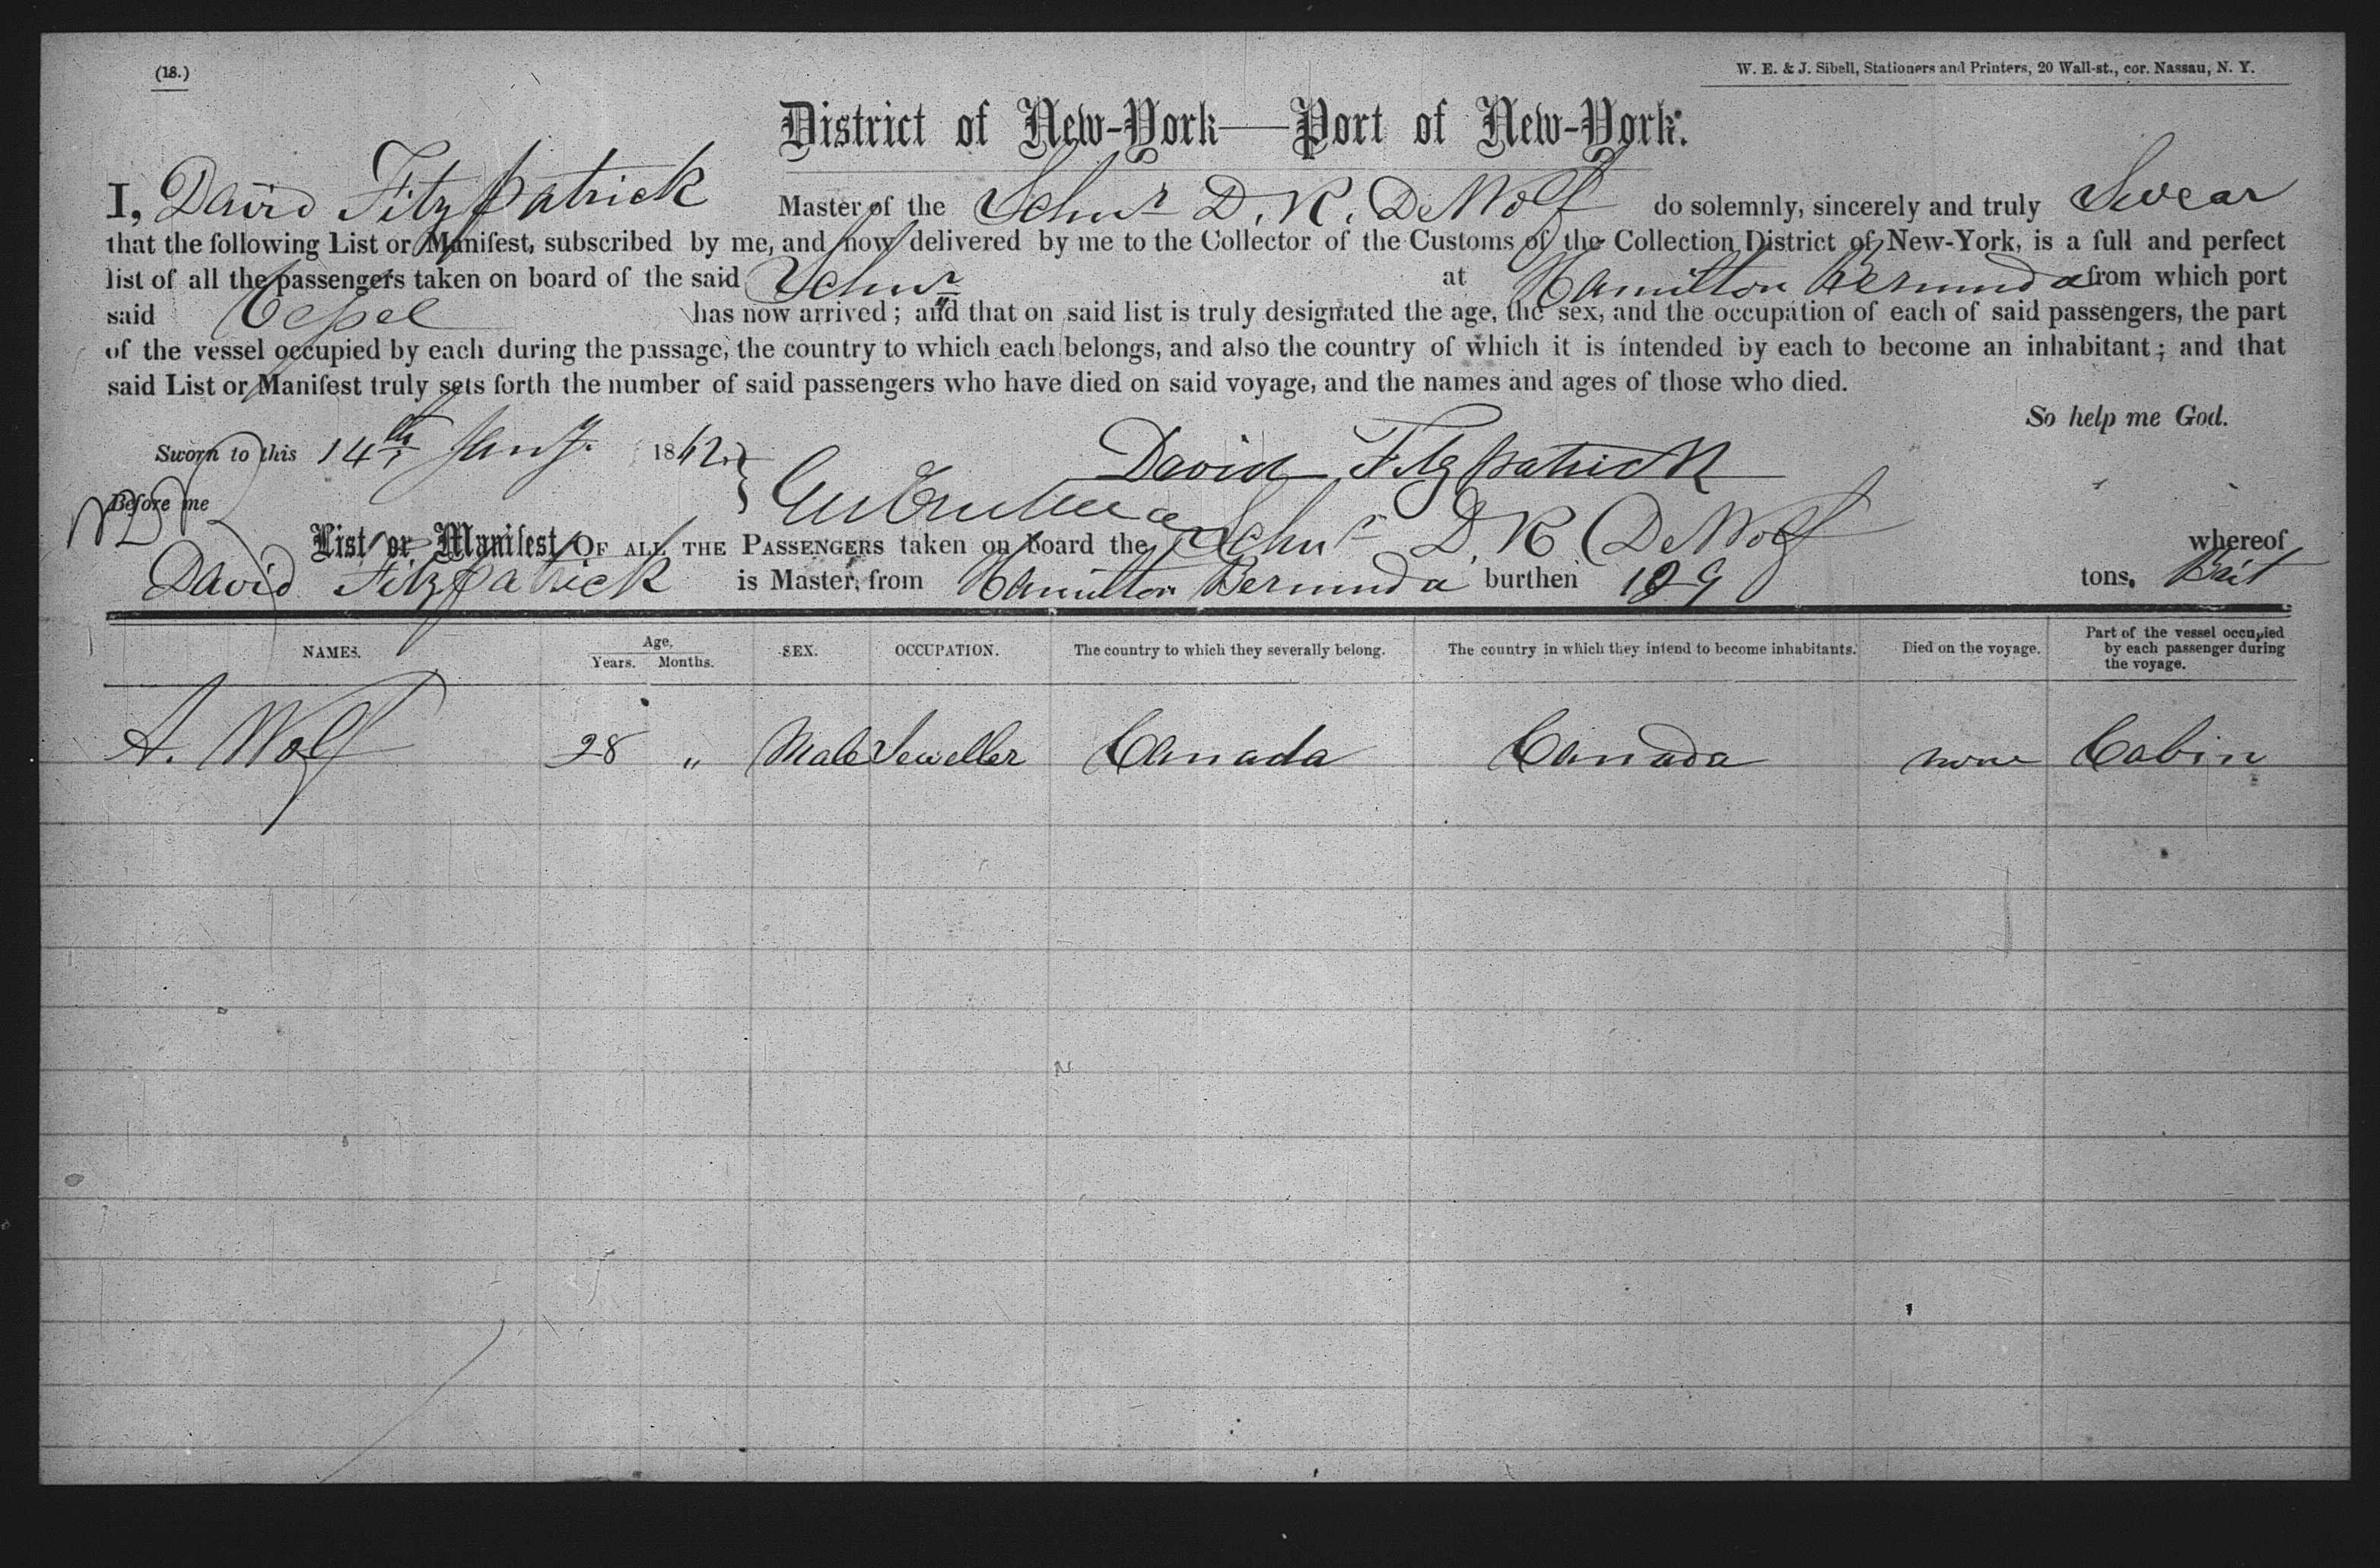 (18.)
W. E. & J. Sibell, Stationers and Printers, 20 Wall-st., cor. Nassau, N. Y.
District of New-York—Port of New-York.
I, David Fitzpatrick Master of the Schnr D. R. DeWolf do solemnly, sincerely and truly Swear
that the following List or Manifest, subscribed by me, and now delivered by me to the Collector of the Customs of the Collection District of New-York, is a full and perfect
list of all the passengers taken on board of the said Schnr at Hamilton Bermuda from which port
said Vessel has now arrived; and that on said list is truly designated the age, the sex, and the occupation of each of said passengers, the part
of the vessel occupied by each during the passage, the country to which each belongs, and also the country of which it is intended by each to become an inhabitant; and that
said List or Manifest truly sets forth the number of said passengers who have died on said voyage, and the names and ages of those who died.
So help me God.
Sworn to this 14th Jany. 1862. David Fitzpatrick
Before me
List or Manifest OF ALL THE PASSENGERS taken on board the Schnr D. R DeWolf whereof
David Fitzpatrick is Master, from Hamilton Bermuda burthen 129 tons. Brit
NAMES. Age. Years. Months. SEX. OCCUPATION. The country to which they severally belong. The country in which they intend to become inhabitants. Died on the voyage. Part of the vessel occupied by each passenger during the voyage.
A. Wolf 28 " Male Jeweller Canada Canada none Cabin